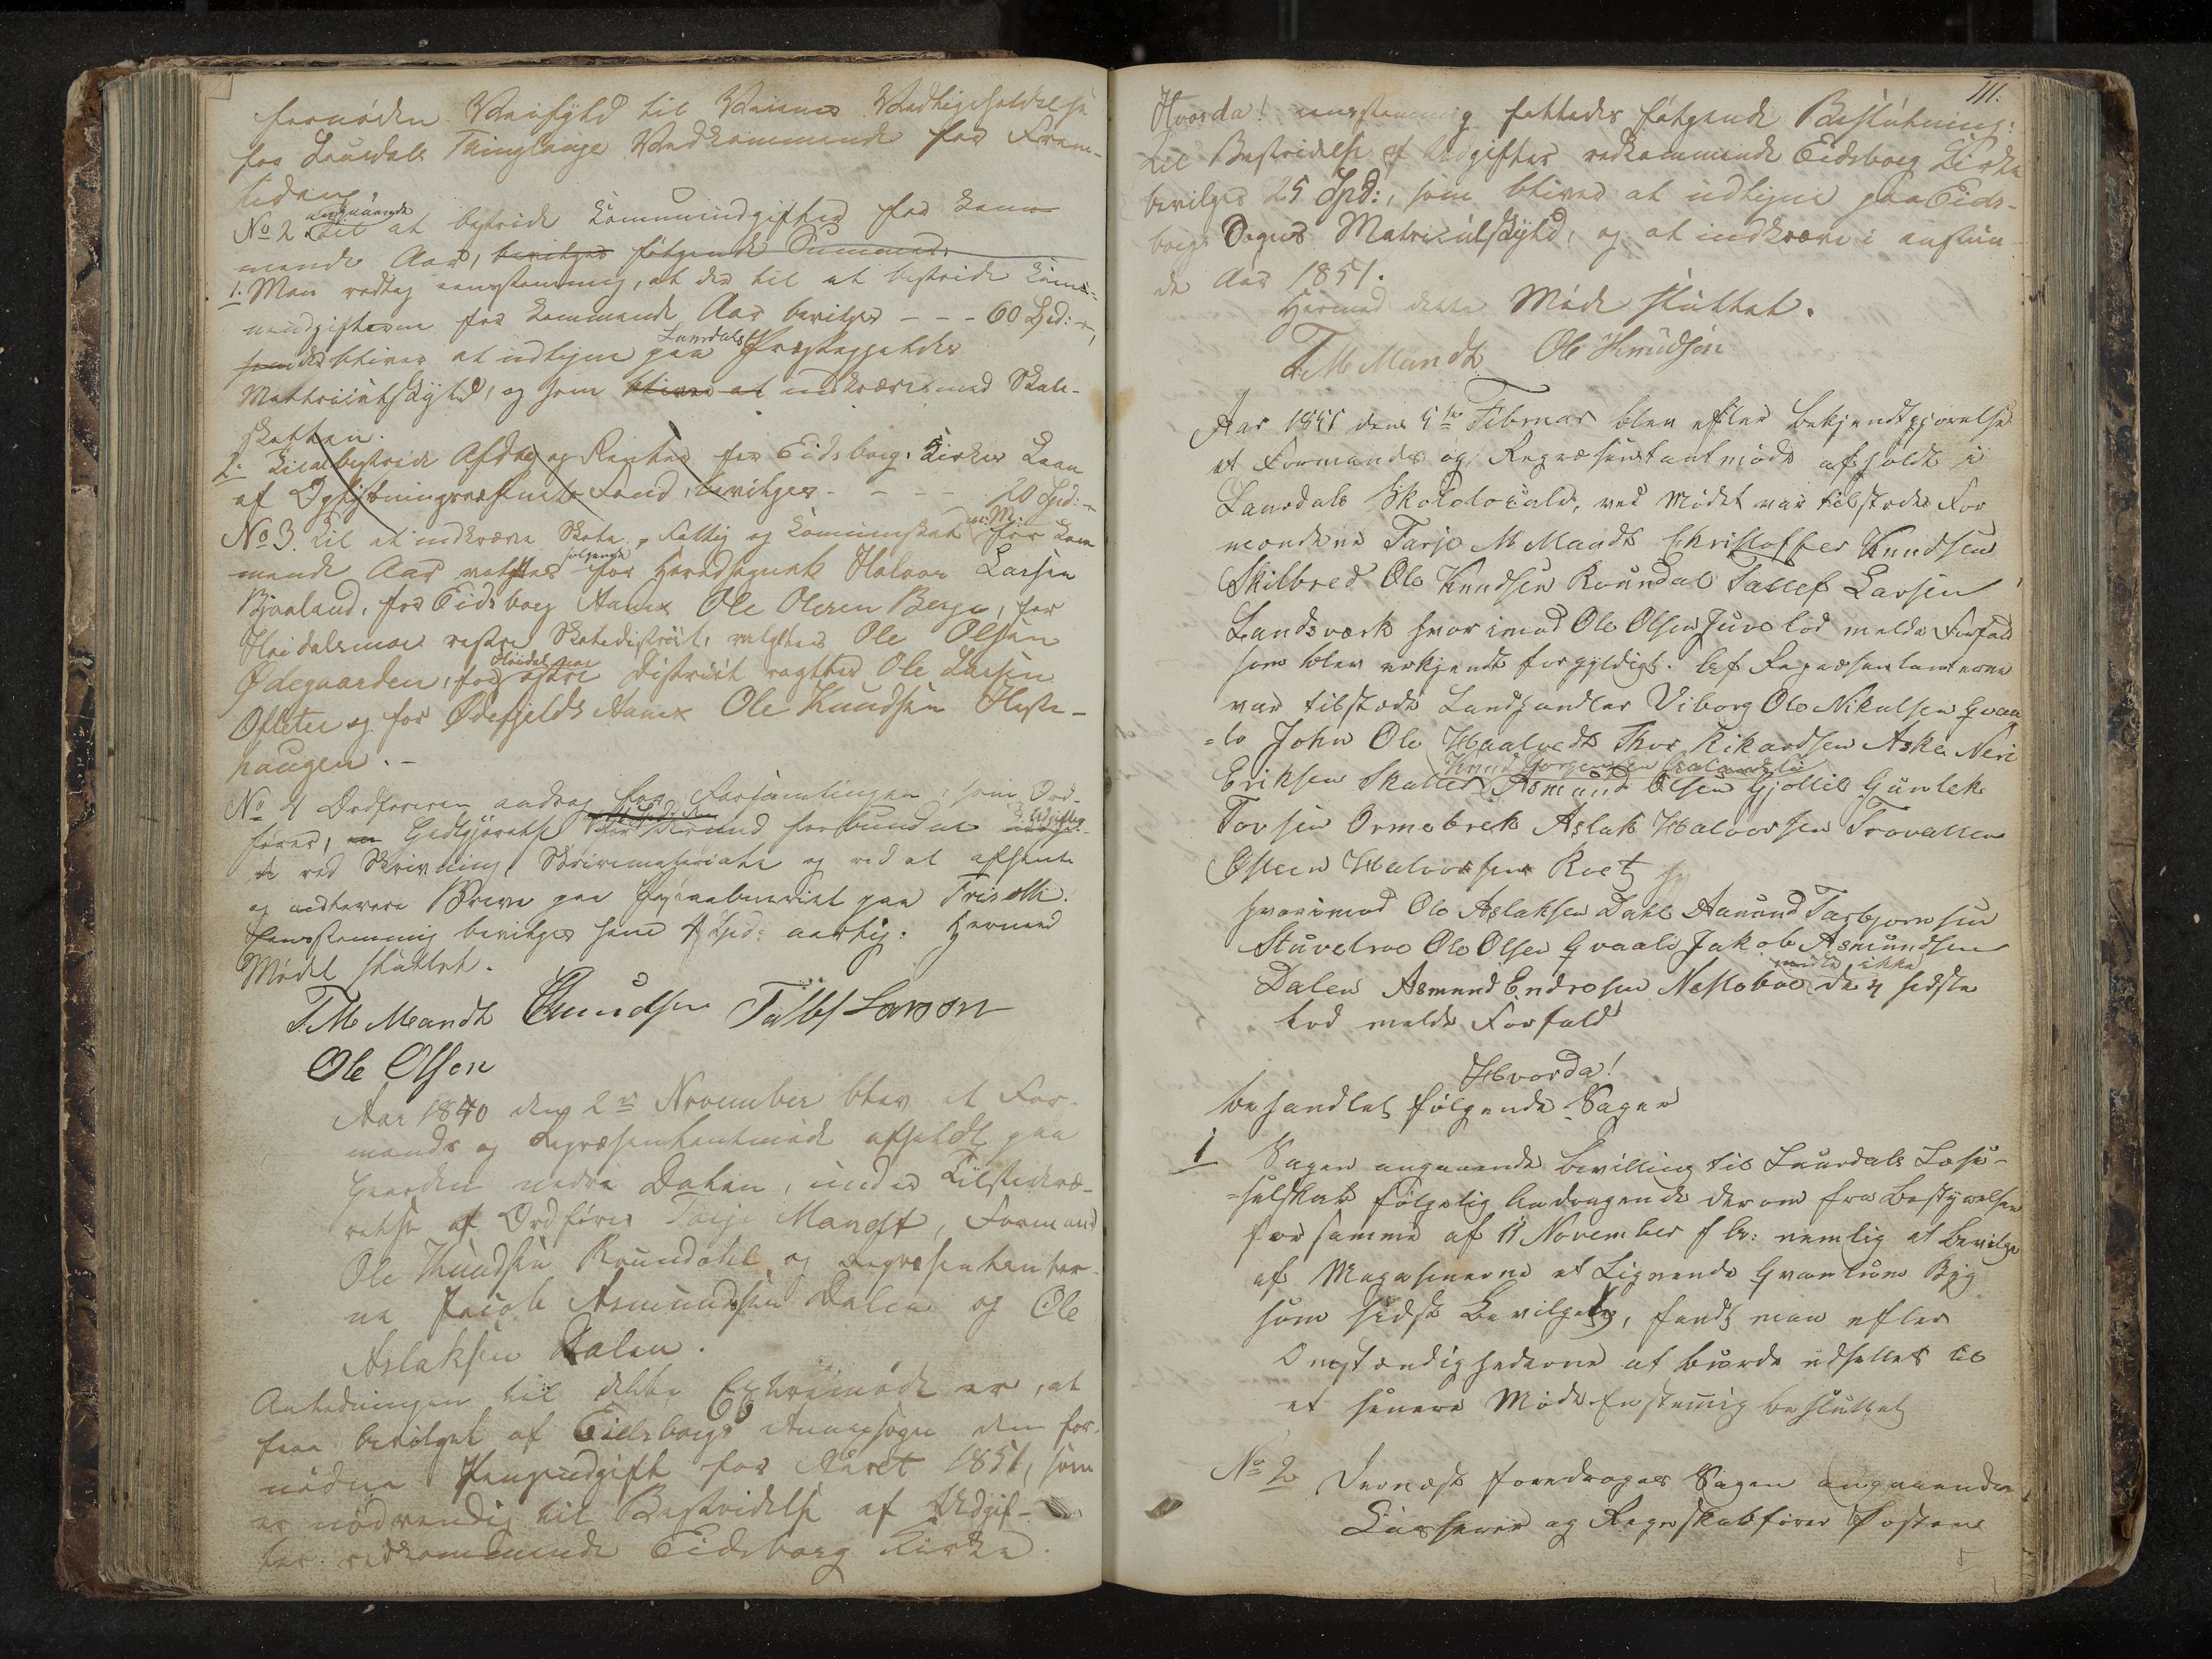 fornøden Veifyld til Veienes Vedligeholdelse
for Laurdals Thinglauge Vedkommende for Frem-
tiden.
No 2 angaaende til at bestride Communeudgifter for kom-
mende Aar, bevilges følgende Summer.
1. Man vedtog eenstemmig, at der til at bestride Com-
muneudgifterne for kommende Aar bevilges - - - 60 Spd:
som der bliver at udligne paa Laurdals Præstegjelds
Mattriculskyld, og som bliver at indkræve med Skole-
skatten.
2. Til at bestride Afdrag og Renter for Eidsborg Kirkes Laan
af Oplysningsvæsenets Fond, bevilges - - - - 20 Spd:
No 3. Til at indkræve Skole, Fattig og Communeskat m: M: for kom
mende Aar valgtes følgende for Hovedsognet Halvor Larsen
Bjaaland, for Eidsborg Annex Ole Olesen Berge, for
Høidalsmoe vestre Skoledistrict, valgtes Ole Olsen
Ødegaarden, for Høidalsmoe østre District valgtes Ole Larsen
Ofletee og for Ødefjelds Annex Ole Knudsen Heste-
haugen. -
No 4 Ordføreren androg for Forsamlingen, som Ord-
fører, en Godtgjørelse for forbundne Udgifter
ved Skrivning, Skrivematerialer og ved at afsende
og modtage Breve paa Postaabneriet paa Triset
Eenstemmig bevilges ham 4 Spd: aarlig. Hermed
Mødet sluttet.
T. M. Mandt CKnudsen Tallef Larson
Ole Olsen
Aar 1840 den 2en November blev et For-
mands og Repræsentantmøde afholdt paa
Gaarden nedre Dalen, under Tilstedevæ-
relse af Ordfører Tarje Mandt, Formand
Ole Knudsen Roundahl, og Repræsentanter-
ne Jacob Asmundsen Dalen og Ole
Aslaksen Dalen.
Anledningen til dette Extramøde er, at
faae bevilget af Eidsborgs Annexsogn den for-
nødne Pengeudgift for Aaret 1851, som
er nødvendig til Bestridelse af Udgif-
ter vedkommende Eidsborg Kirke.
111.
Hvorda! eenstemmig fattedes følgende Beslutning:
Til Bestridelse af Udgifter vedkommende Eidsborg Kirke
bevilges 25 Spd:, som bliver at udligne paa Eids-
borgs Sogns Matriculskyld, og at indkræve i anstun-
de Aar 1851.
Hermed dette Møde sluttet.
T. M. Mandt Ole Knudsøn
Aar 1851 den 5te Februar blev efter bekjendtgjørelse
et Formands og Repræsentantmøde afholdt i
Laurdals Skolelocale, ved Mødet var tilstede For
mændene Tarje M Mandt Christoffer Knudsen
Skilbred Ole Knudsen Roundal Tallef Larsen
Landsverk hvorimod Ole Olsen Juve lod melde Forfald
som blev erkjendt for gyldigt. Af Repræsentanterne
var tilstede Landhandler Viborg Ole Nikulsen Qvaa
-le John Ole Haatvedt Thor Rikardsen Aske Neri
Eriksen Skalled Knud Jorgensen Asmund Olsen Gjøllil Gunlek
Tovsen Ormebrek Aslak Halvorsen Trovatten
Østen Halvorsen Roe
hvorimod Ole Aslaksen Dahl Aanund Tarbjørnsen
Stuvelroe Ole Olsen Qvaale Jakob Asmundsen
Dalen Asmund Endresen Næslebøe mødte ikke de 4 sidste
lod melde Forfald
Hvorda!
behandlet følgende Sager
1 Sagen angaaende bevilling til Laurdals Læse-
-selskab følgelig Andragende derom fra Bestyrelsen
for samme af 11 November f Ar: nemlig at bevilge
af Magasinerne et Lignende Qvantum Byg
som sidst Bevilget, fandt man efter
Omstændighederne at burde udsettes til
et senere Møde Enstemig besluttet
No 2 Dernæst foredroges Sagen angaaende
Kasserer og Regnskabsfører Posten